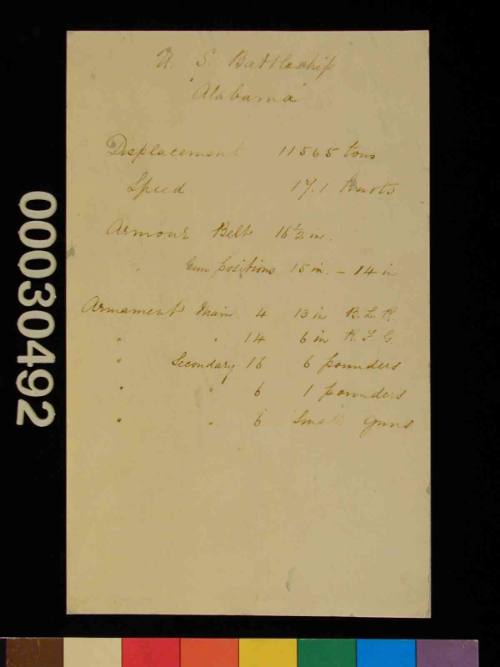 U. S. Battleship
"Alabama"
Displacement 11565 tons
Speed 17.1 Knots
Armour Belt 16½ in.
" Gun positions 15 in. - 14 in
Armament Main 4 13 in B.L.R.
" " 14 6 in R.F.G.
" Secondary 16 6 pounders
" " 6 1 pounders
" " 6 Small guns
00030492